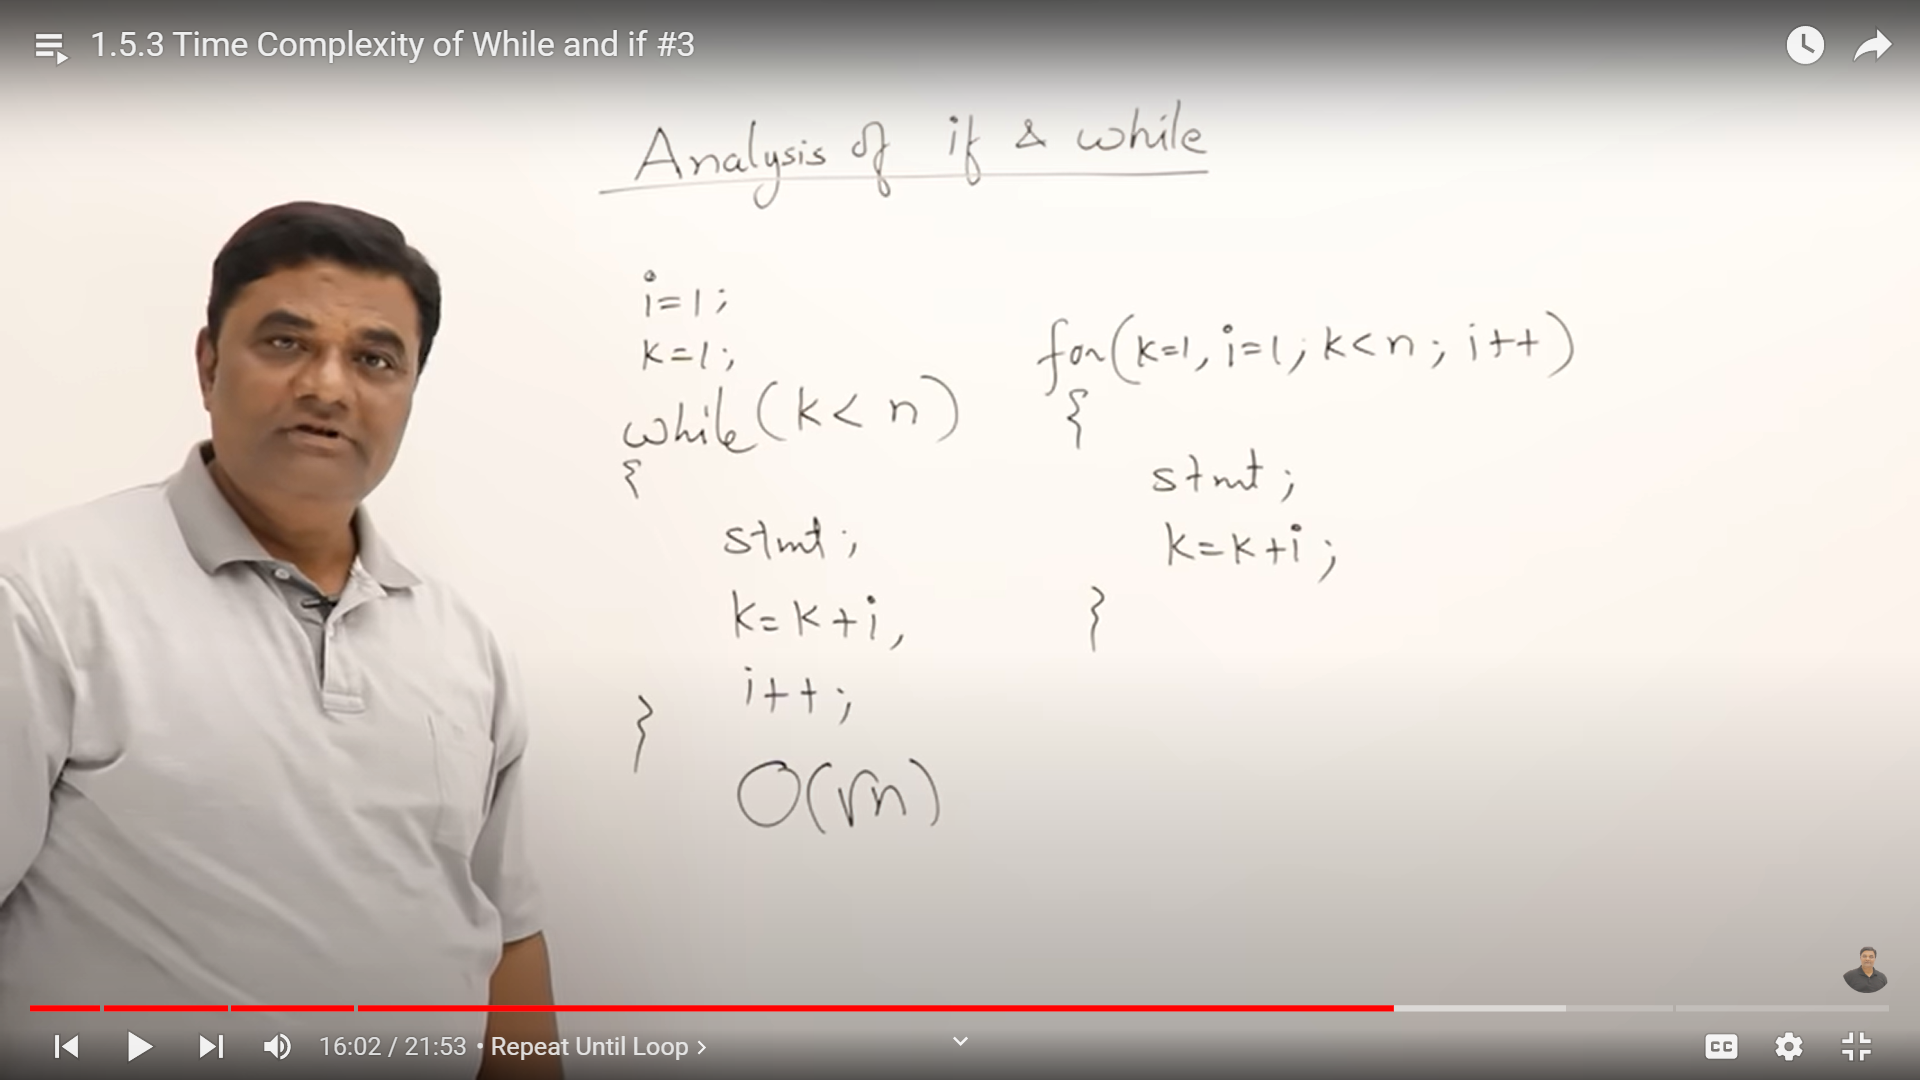 1.5.3 Time Complexity of While and if #3
Analysis of if & while
i=1;
k=1;
while(k< n)
{
stmt;
k=k+i,
i++;
}
O(√n)
for(k=1, i=1; k<n; i++)
{
stmt;
k=k+i;
}
16:02 / 21:53 • Repeat Until Loop >
CC